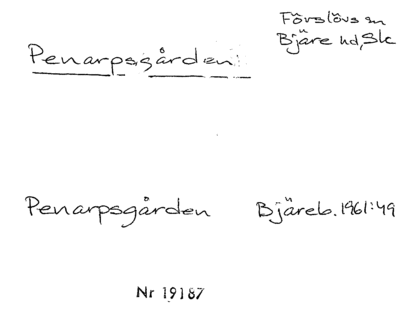 Förslövs sn
Penarpsgården
Bjäre hd, Sk
Penarpsgården Bjäreb. 1961:49
Nr 19187